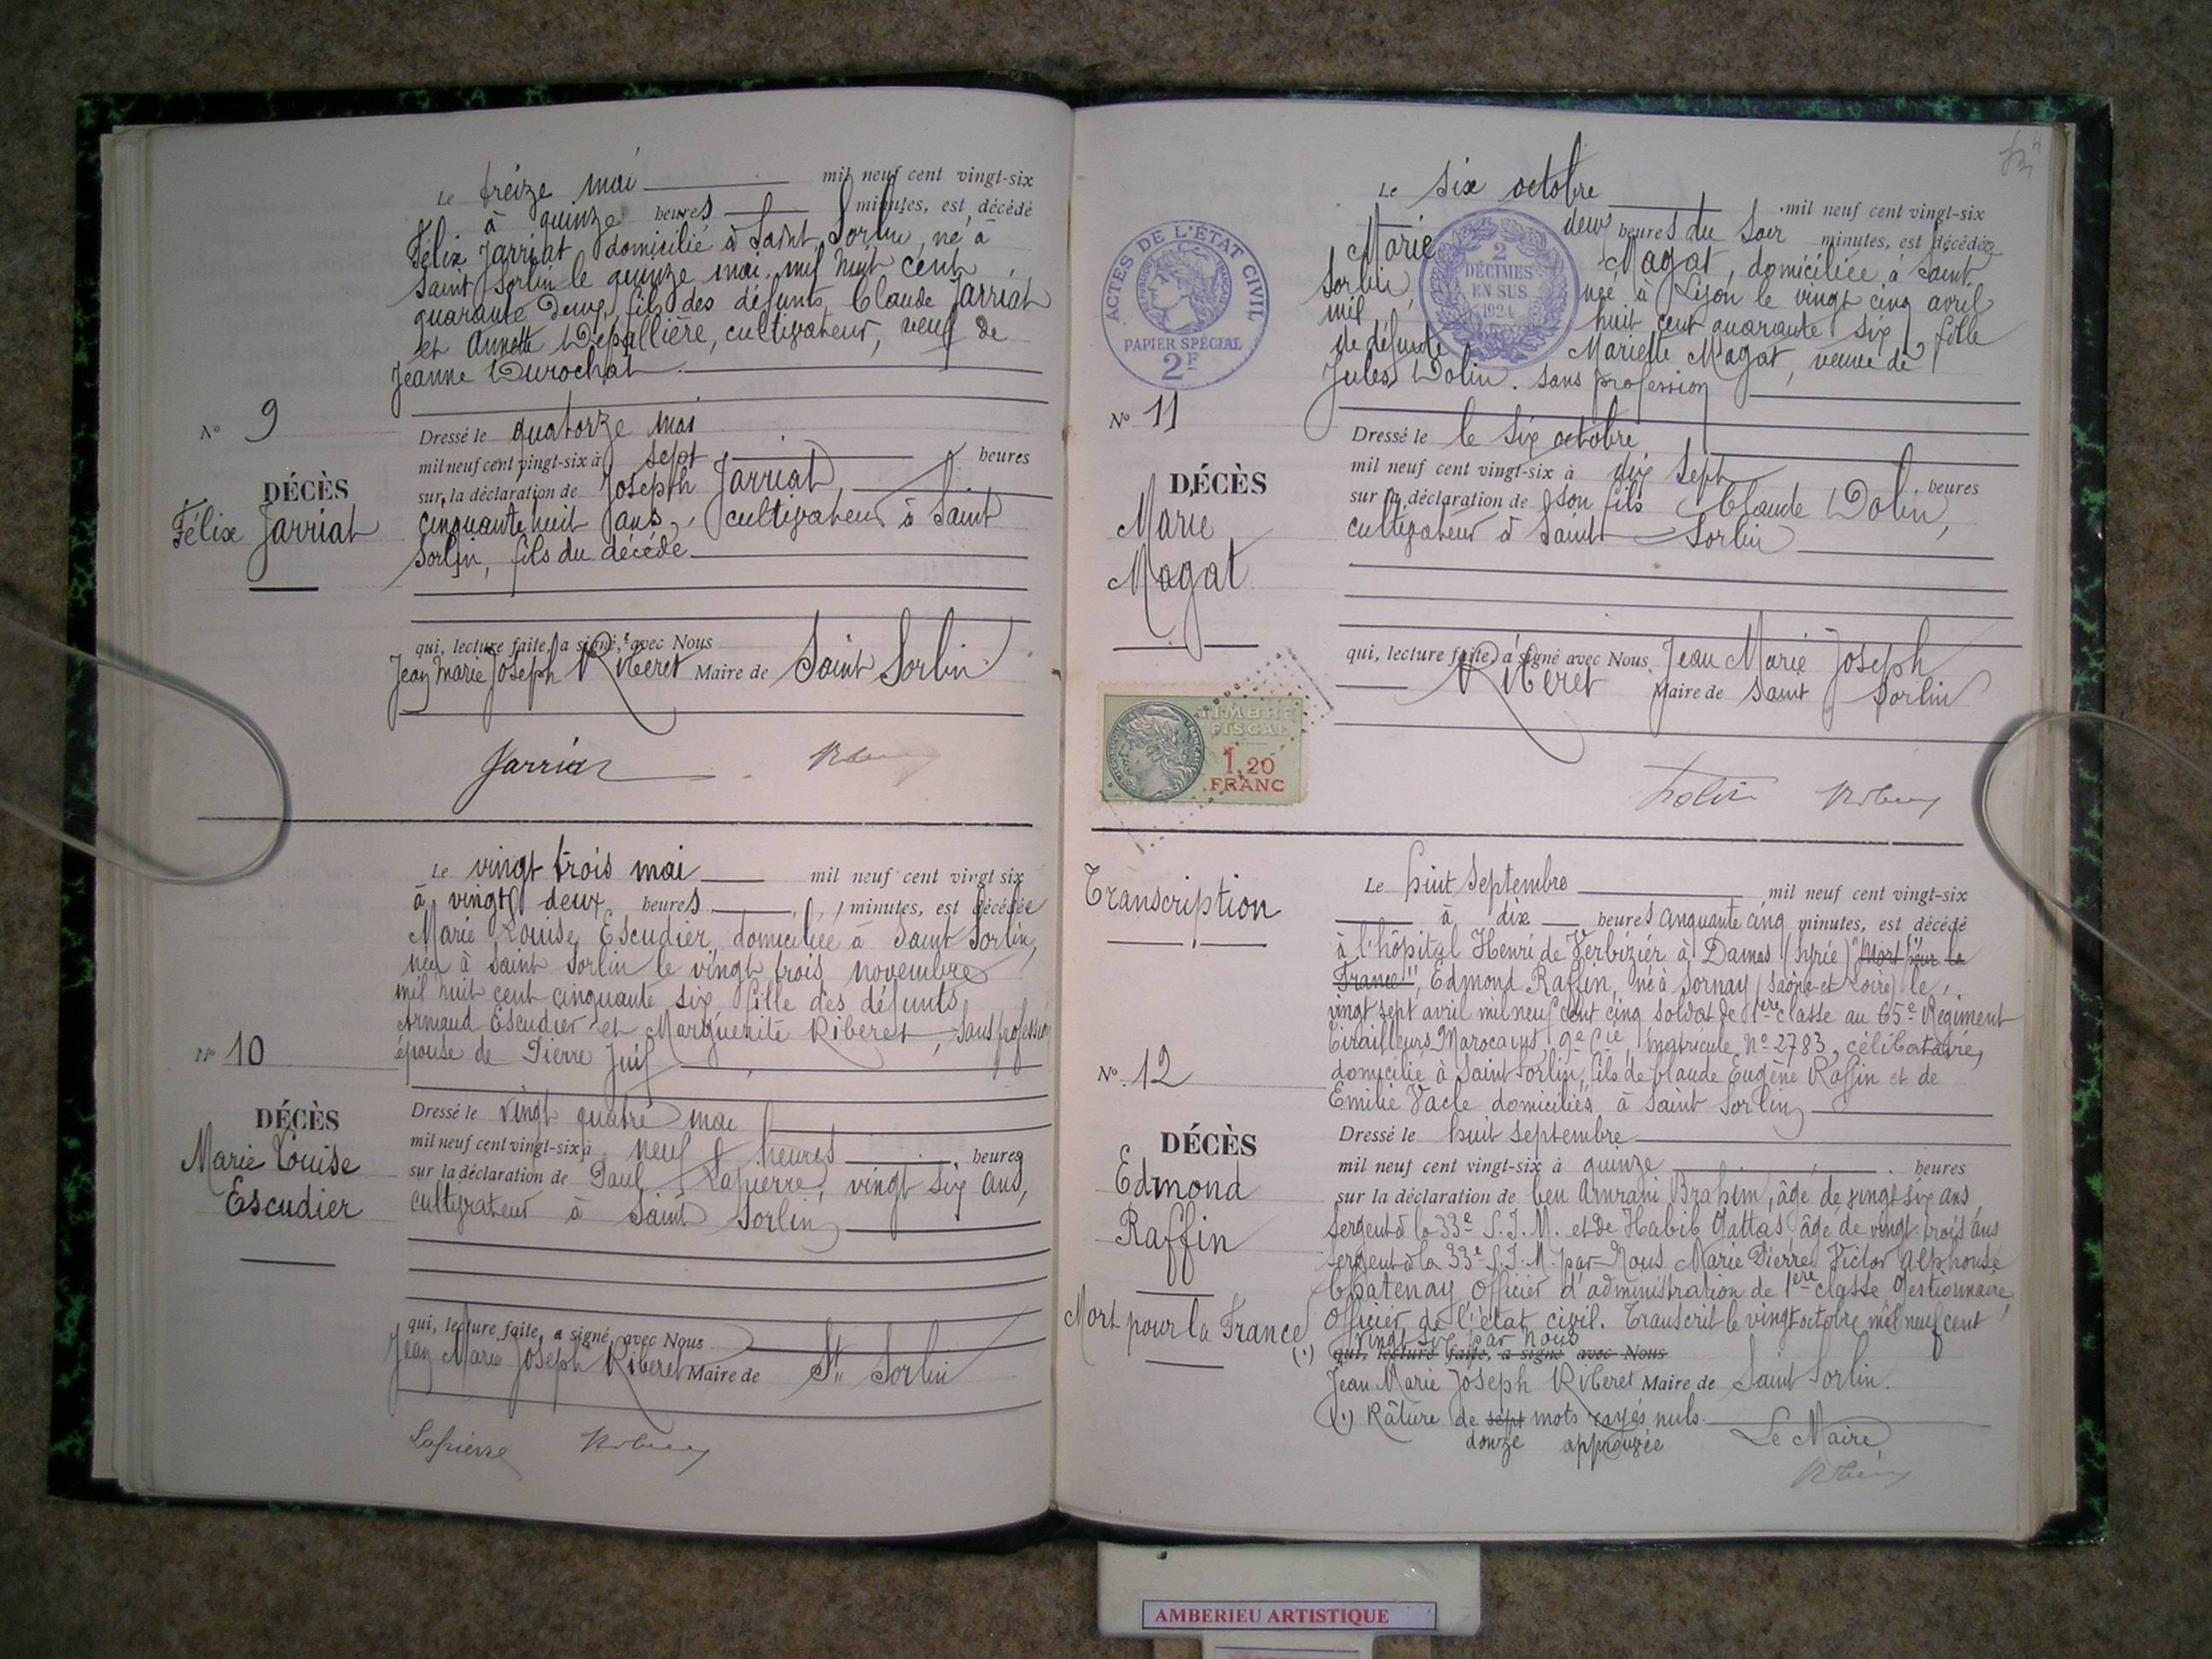 Le treize mai mil neuf cent vingt-six
à quinze heures minutes, est décédé
Félix Jarriat domicilié à Saint Sorlin, né à
Saint Sorlin le quinze mai mil huit cent
quarante deux, fils des défunts Claude Jarriat
et Annette Depallière, cultivateur, veuf de
Jeanne Durochat.
No 9
DÉCÈS
Félix Jarriat
Dressé le quatorze mai
mil neuf cent vingt-six à sept heures
sur la déclaration de Joseph Jarriat,
cinquante huit ans, cultivateur à Saint
Sorlin, fils du décédé
qui, lecture faite, a signé avec Nous
Jean Marie Joseph Riberet Maire de Saint Sorlin
Jarriat
Le vingt trois mai mil neuf cent vingt six
à vingt deux heures minutes, est décédée
Marie Louise Escudier domiciliée à Saint Sorlin,
née à Saint Sorlin le vingt trois novembre
mil huit cent cinquante six fille des défunts
Armand Escudier et Marguerite Riberet, sans profession
épouse de Pierre Juif
No 10
DÉCÈS
Marie Louise
Escudier
Dressé le vingt quatre mai
mil neuf cent vingt-six à neuf heures heures
sur la déclaration de Paul Lapierre, vingt six ans,
cultivateur à Saint Sorlin
qui, lecture faite, a signé, avec Nous
Jean Marie Joseph Riberet Maire de St Sorlin
Lapierre
Le six octobre mil neuf cent vingt-six
deux heures du soir minutes, est décédée
Marie Magat, domiciliée à Saint
Sorlin, née à Lyon le vingt cinq avril
mil huit cent quarante six, fille
de défunte Mariette Magat, veuve de
Jules Dolin. sans profession
ACTES DE L'ÉTAT CIVIL
PAPIER SPÉCIAL
2F
2
DÉCIMES
EN SUS
1924
No 11
DÉCÈS
Marie
Magat
Dressé le le six octobre
mil neuf cent vingt-six à dix sept heures
sur la déclaration de son fils Claude Dolin,
cultivateur à Saint Sorlin
qui, lecture faite, a signé avec Nous Jean Marie Joseph
Riberet Maire de Saint Sorlin
TIMBRE
FISCAL
1,20
FRANC
Dolin
Transcription
Le huit Septembre mil neuf cent vingt-six
à dix heures cinquante cinq minutes, est décédé
à l'hôpital Henri de Verbizier à Damas (Syrie) "Mort pour la
France", Edmond Raffin, né à Sornay (Saône-et-Loire) le
vingt sept avril mil neuf cent cinq soldat de 1ère classe au 65e Régiment
Tirailleurs Marocains, 9e Cie, matricule No 2783, célibataire,
domicilié à Saint Sorlin, fils de Claude Eugène Raffin et de
Emilie Vacle domiciliés à Saint Sorlin
No 12
DÉCÈS
Edmond
Raffin
Mort pour la France
Dressé le huit septembre
mil neuf cent vingt-six à quinze heures
sur la déclaration de ben Amrani Brahim, âgé de vingt six ans
Sergent à la 33e S.I.M. et de Habib Gattas, âgé de vingt trois ans
sergent à la 33e S.I.M. par Nous Marie Pierre Victor Alphonse
Chatenay Officier d'administration de 1ère classe Gestionnaire,
Officier de l'état civil. Transcrit le vingt octobre mil neuf cent
vingt six par nous
(1) qui, lecture faite, a signé avec Nous
Jean Marie Joseph Riberet Maire de Saint Sorlin.
(1) Râture de sept mots rayés nuls
douze approuvée Le Maire,
AMBERIEU ARTISTIQUE